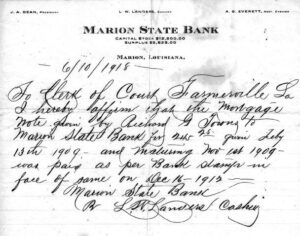 J. A. DEAN, PRESIDENT
L. R. LANDERS, CASHIER
A. B. EVERETT, ASST. CASHIER
MARION STATE BANK
CAPITAL STOCK $12,500.00
SURPLUS $2,625.00
MARION, LOUISIANA.
6/10/1918
To Clerk of Court, Farmerville La
I hereby affirm that the Mortgage
Note given by G. Toons to
Marion State Bank for given Feby
13th 1909 and maturing Nov 1st 1909
was paid as per Bank stamp in
face of same on Dec 16 1912
Marion State Bank
L. R. Landers Cashier